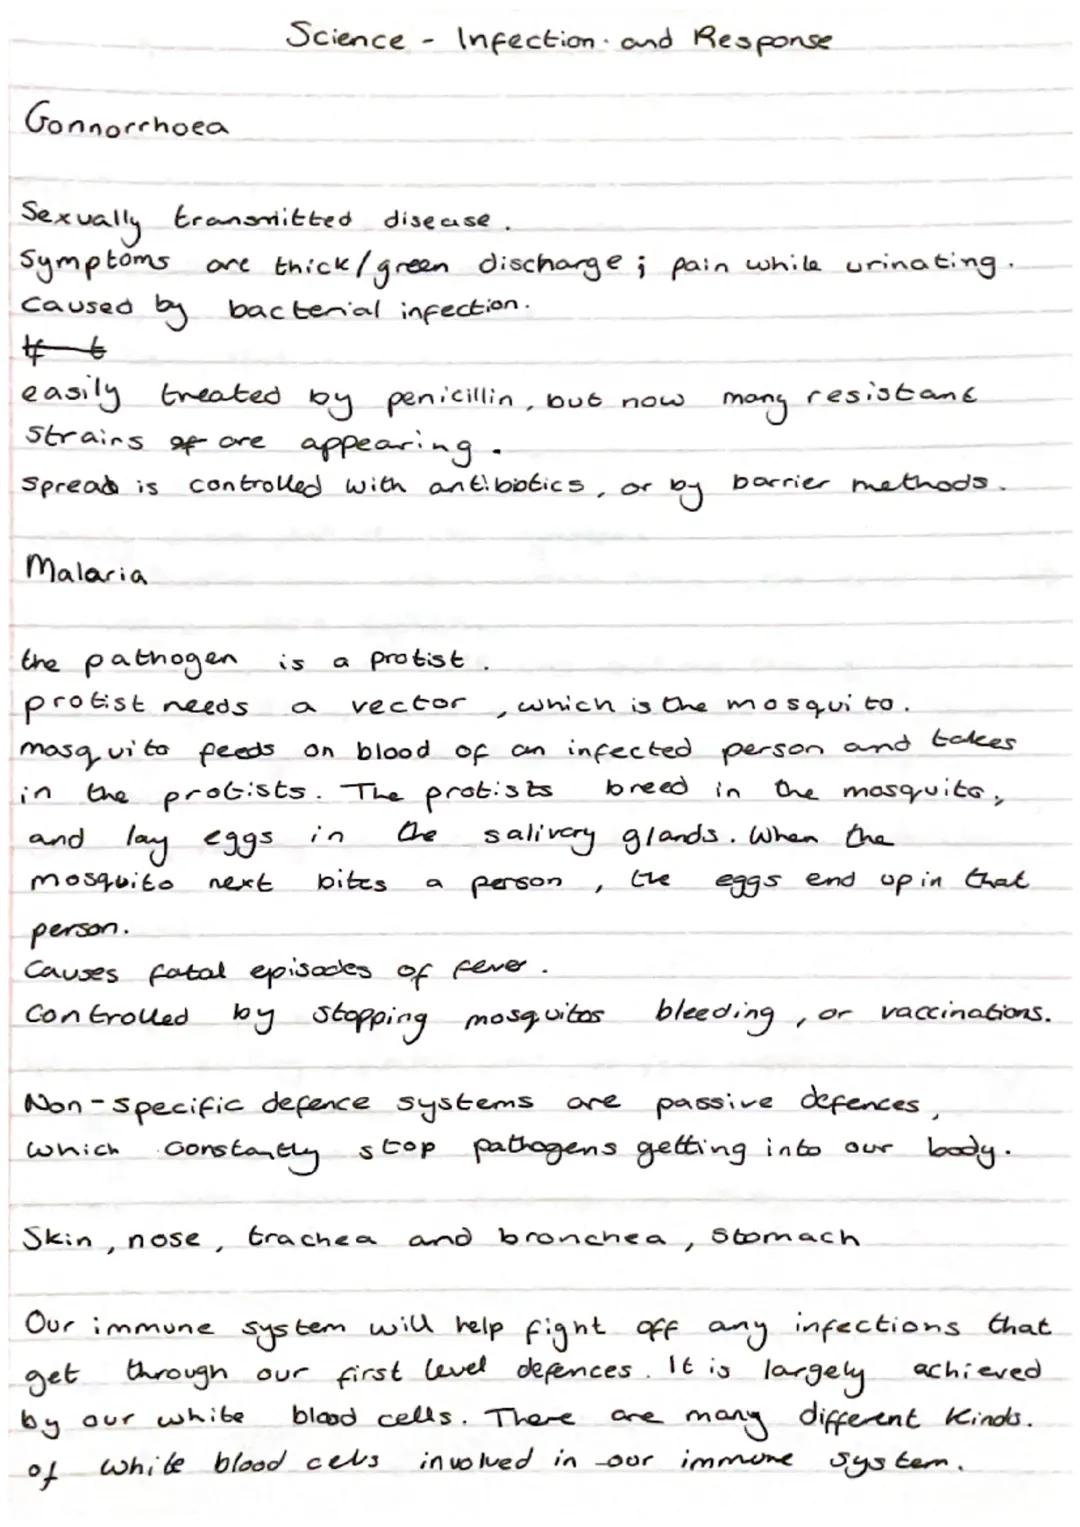 Science - Infection and Response
Gonnorrhoea
Sexually transmitted disease.
Symptoms are thick/green discharge; pain while urinating.
caused by bacterial infection.
easily treated by penicillin, but now many resistant
strains of are appearing.
spread is controlled with antibiotics, or by barrier methods.
Malaria
the pathogen is a protist.
protist needs a vector, which is the mosquito.
mosquito feeds on blood of an infected person and takes
in the protists. The protists breed in the mosquito,
and lay eggs in the salivary glands. When the
mosquito next bites a person, the eggs end up in that
person.
Causes fatal episodes of fever.
Controlled by stopping mosquitos bleeding, or vaccinations.
Non-specific defence systems are passive defences,
which constantly stop pathogens getting into our body.
Skin, nose, trachea and bronchea, stomach
Our immune system will help fight off any infections that
get through our first level defences. It is largely achieved
by our white blood cells. There are many different kinds.
of white blood cells involved in our immune system.